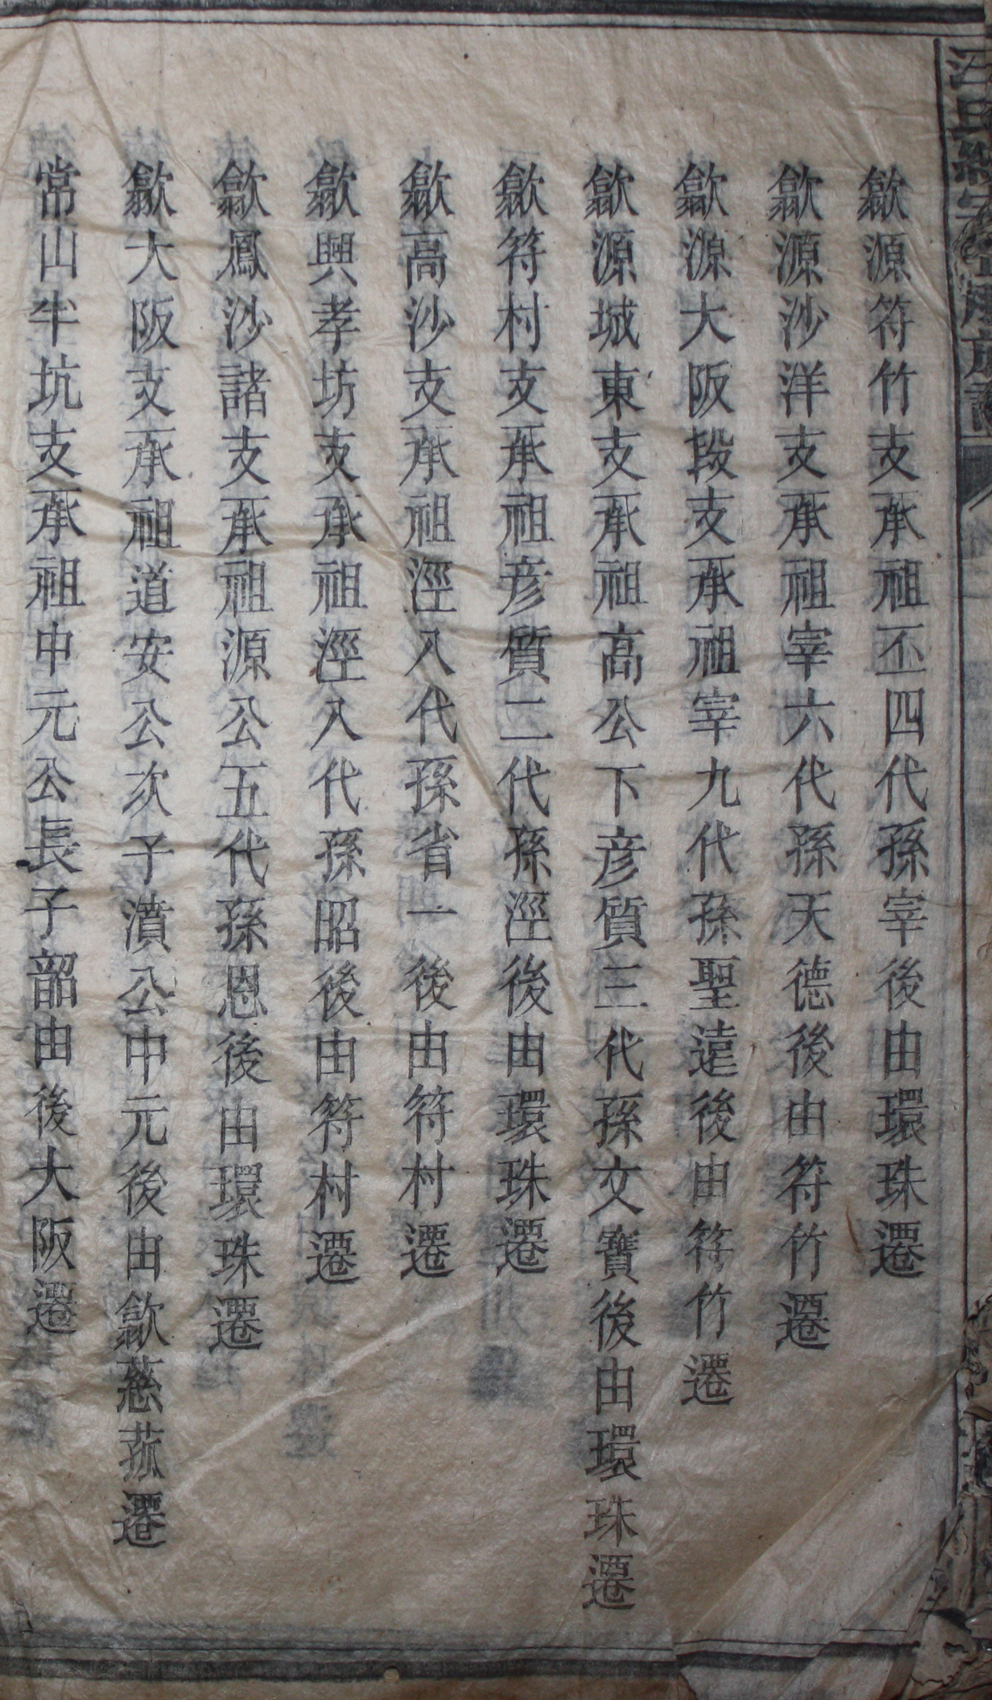 歙源符竹支承祖丕四代孫宰後由環珠遷
歙源沙洋支承祖宰六代孫天德後由符竹遷
歙源大阪段支承祖宰九代孫聖遠後由符竹遷
歙源城東支承祖高公下彦質三代孫文寶後由環珠遷
歙符村支承祖彦質二代孫涇後由環珠遷
歙高沙支承祖涇八代孫省一後由符村遷
歙興孝坊支承祖涇八代孫昭後由符村遷
歙鳳沙諸支承祖源公五代孫恩後由環珠遷
歙大阪支承祖道安公次子濆公中元後由歙慈菰遷
常山半坑支承祖中元公長子韶由後大阪遷